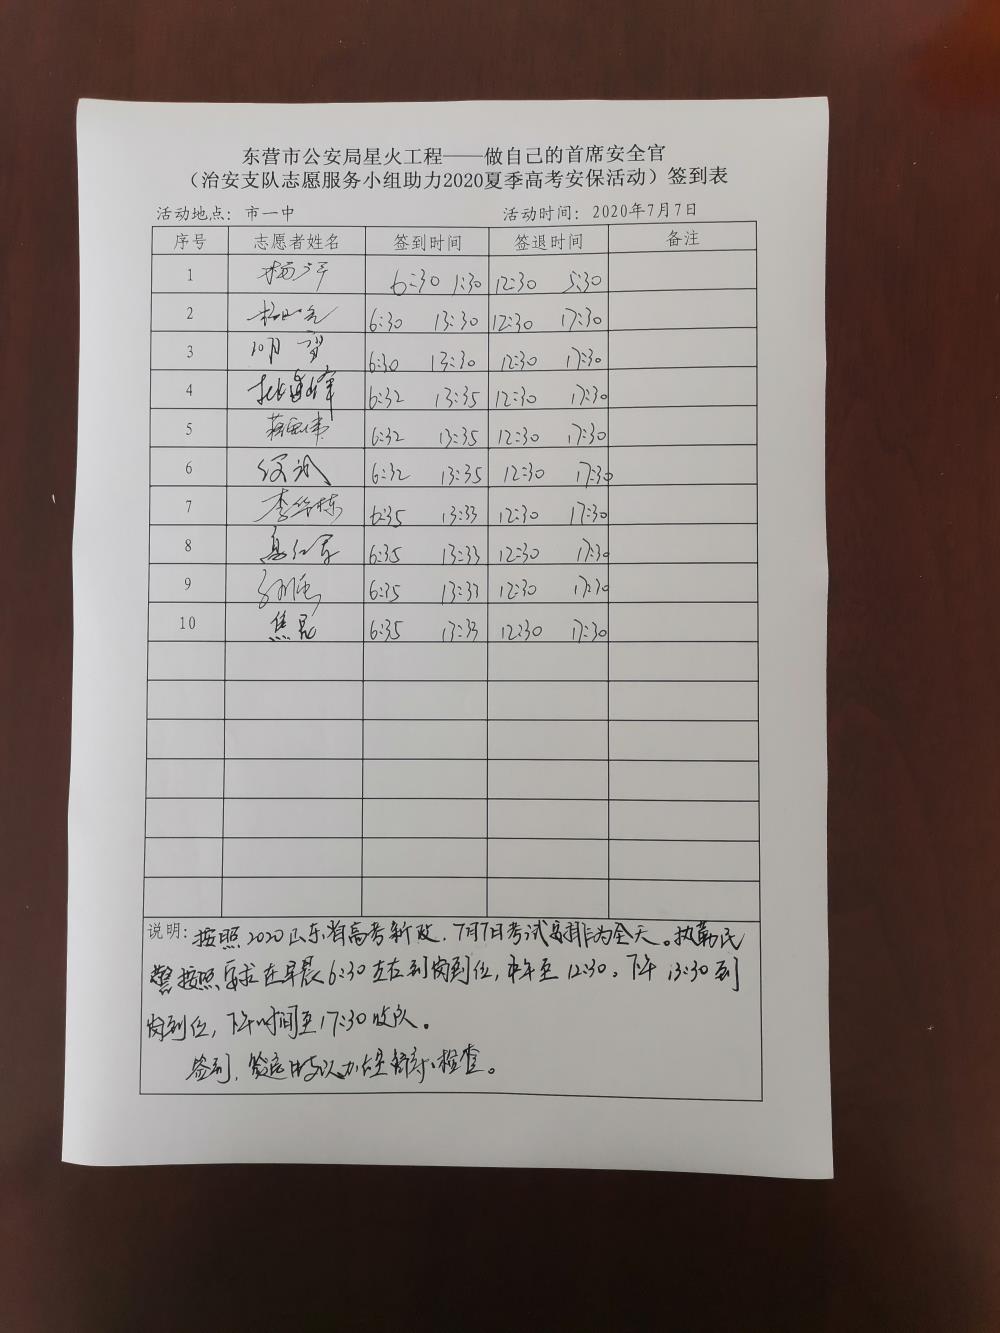 东营市公安局星火工程——做自己的首席安全官
（治安支队志愿服务小组助力2020夏季高考安保活动）签到表
活动地点：市一中 活动时间：2020年7月7日
序号 志愿者姓名 签到时间 签退时间 备注
1 6:30 1:30 12:30 5:30
2 6:30 13:30 12:30 17:30
3 6:30 13:30 12:30 17:30
4 6:32 13:35 12:30 17:30
5 6:32 13:35 12:30 17:30
6 6:32 13:35 12:30 17:30
7 李华栋 6:35 13:33 12:30 17:30
8 6:35 13:33 12:30 17:30
9 6:35 13:33 12:30 17:30
10 焦昆 6:35 13:33 12:30 17:30
说明：按照2020山东省高考新政，7月7日考试安排为全天。执勤民
警按照要求在早晨6:30左右到岗到位，中午至12:30。下午13:30到
岗到位，下午时间至17:30收队。
签到，签退由支队办公室 检查。